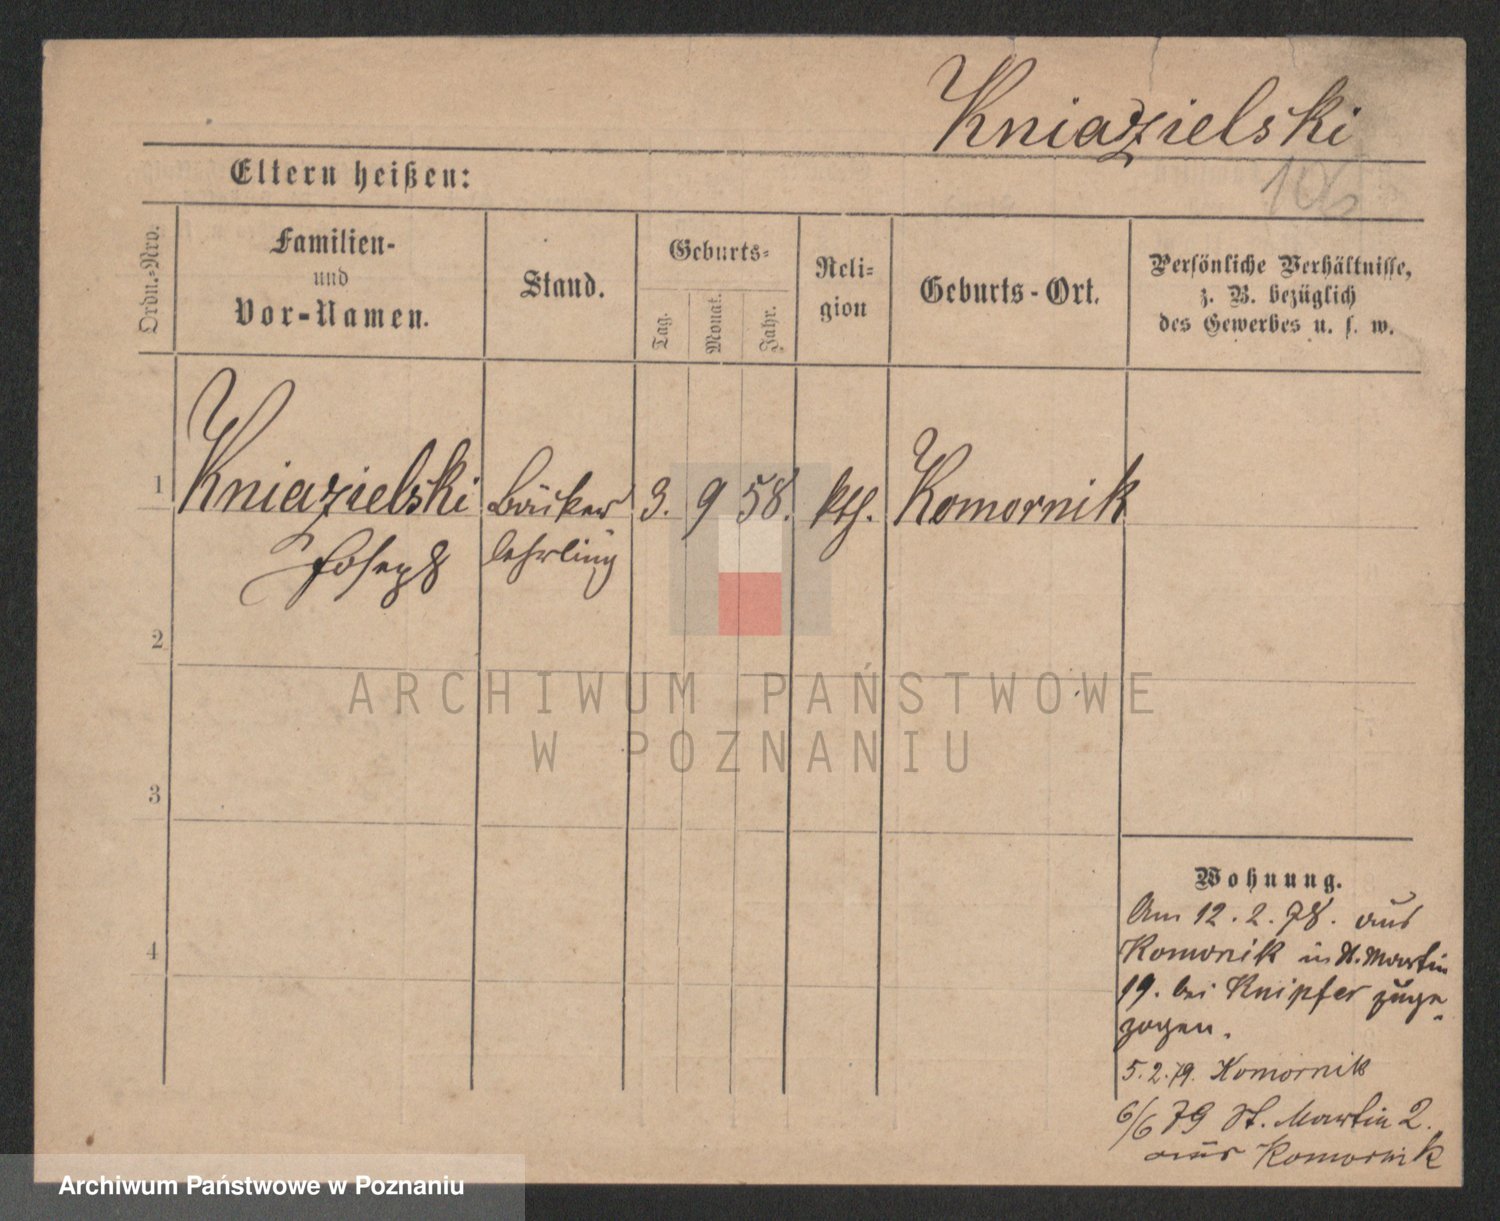 Kniazielski
106
Eltern heißen:
Ordn.-Nro.
Familien-
und
Vor-Namen.
Stand.
Geburts-
Tag.
Monat.
Jahr.
Reli-
gion
Geburts-Ort.
Persönliche Verhältnisse,
z. B. bezüglich
des Gewerbes u. s. w.
1 Kniazielski Bäcker 3. 9 58. kth. Komornik
Joseph lehrling
2
3
4
ARCHIWUM PAŃSTWOWE
W POZNANIU
Wohnung.
Am 12. 2. 78. aus
Komornik in St. Martin
19. bei Knipfer zuge-
zogen.
5. 2. 79. Komornik
6/6 79 St. Martin 2.
aus Komornik
Archiwum Państwowe w Poznaniu